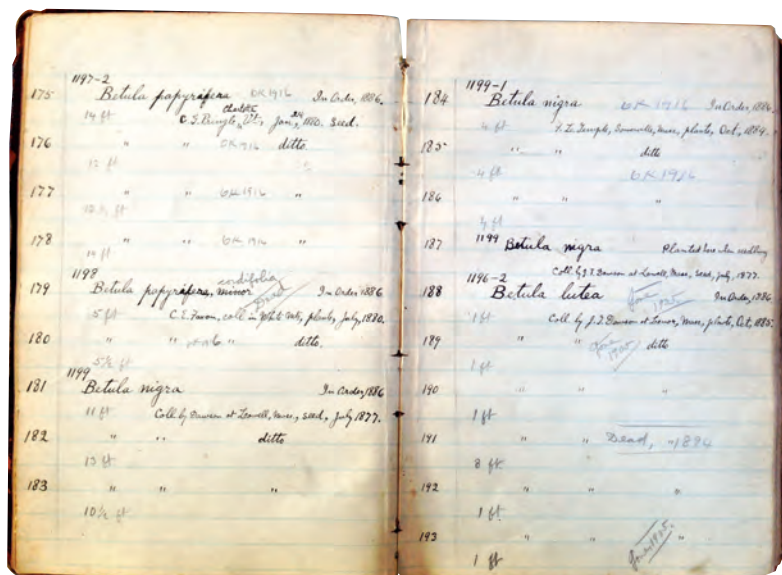 1197-2
175 Betula papyrifera OK 1916 In Order, 1886.
14 ft C. G. Pringle, Charlotte, Vt., Jan. 1880. Seed.
176 " " OK 1916 ditto
12 ft
177 " " OK 1916 "
12 ½ ft
178 " " OK 1916 "
14 ft
1198
cordifolia
179 Betula papyrifera, minor Dead In Order, 1886
5 ft C. E. Faxon, coll. in White Mts, plants, July, 1880.
180 " " " ditto.
5 ½ ft
1199
181 Betula nigra In Order, 1886
11 ft Coll. by Dawson at Lowell, Mass., seed, July 1877.
182 " " ditto
13 ft
183 " " "
10 ½ ft
1199-1
184 Betula nigra OK 1916 In Order, 1886
4 ft F. L. Temple, Somerville, Mass., plants, Oct, 1884.
185 " " ditto
4 ft OK 1916
186 " " "
4 ft
187 1199 Betula nigra Planted here when seedling
Coll. by J. Dawson at Lowell, Mass., seed, July, 1877.
1196-2
188 Betula lutea Gone 1925 In Order, 1886
1 ft Coll. by J. Dawson at Lenox, Mass., plants, Oct, 1885.
189 " " Gone 1925 ditto
1 ft
190 " " "
1 ft
191 " " Dead, 1894
8 ft.
192 " " "
1 ft.
193 " " Gone 1925. "
1 ft